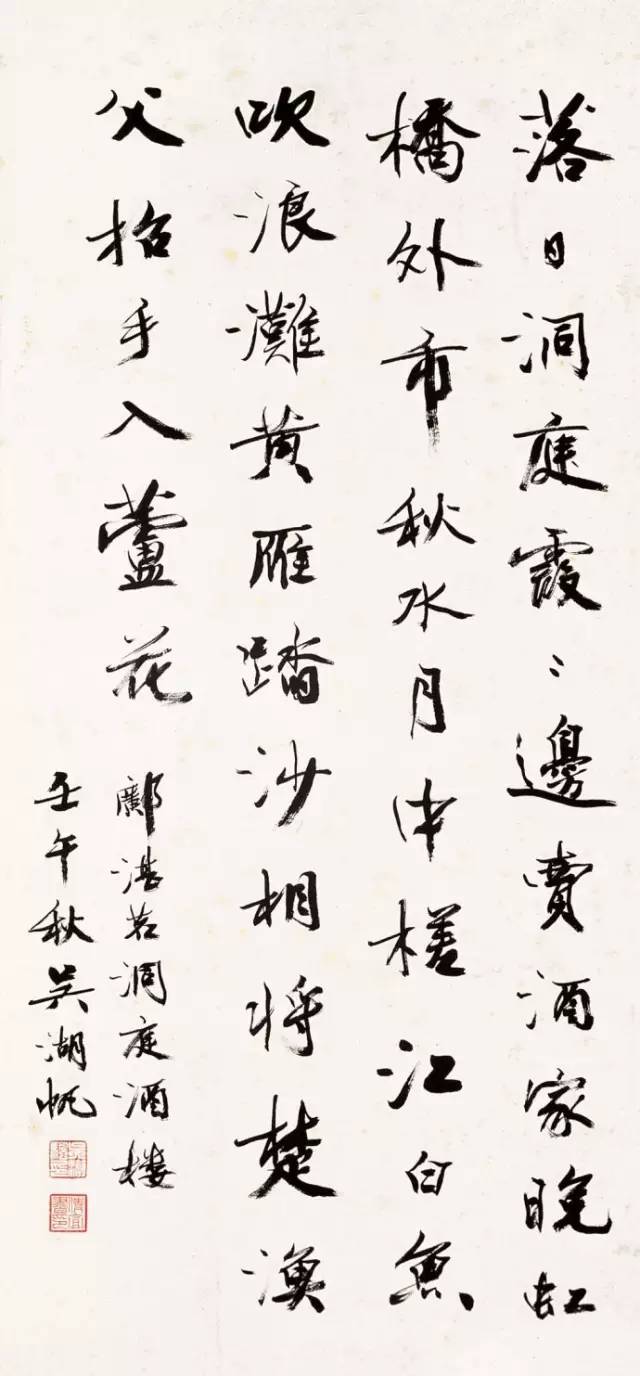 落日洞庭霞〻邊賣酒家晚虹
橋外市秋水月中槎江白魚
吹浪灘黄雁踏沙相將楚漁
父招手入蘆花
鄺湛若洞庭酒樓
壬午秋吳湖帆